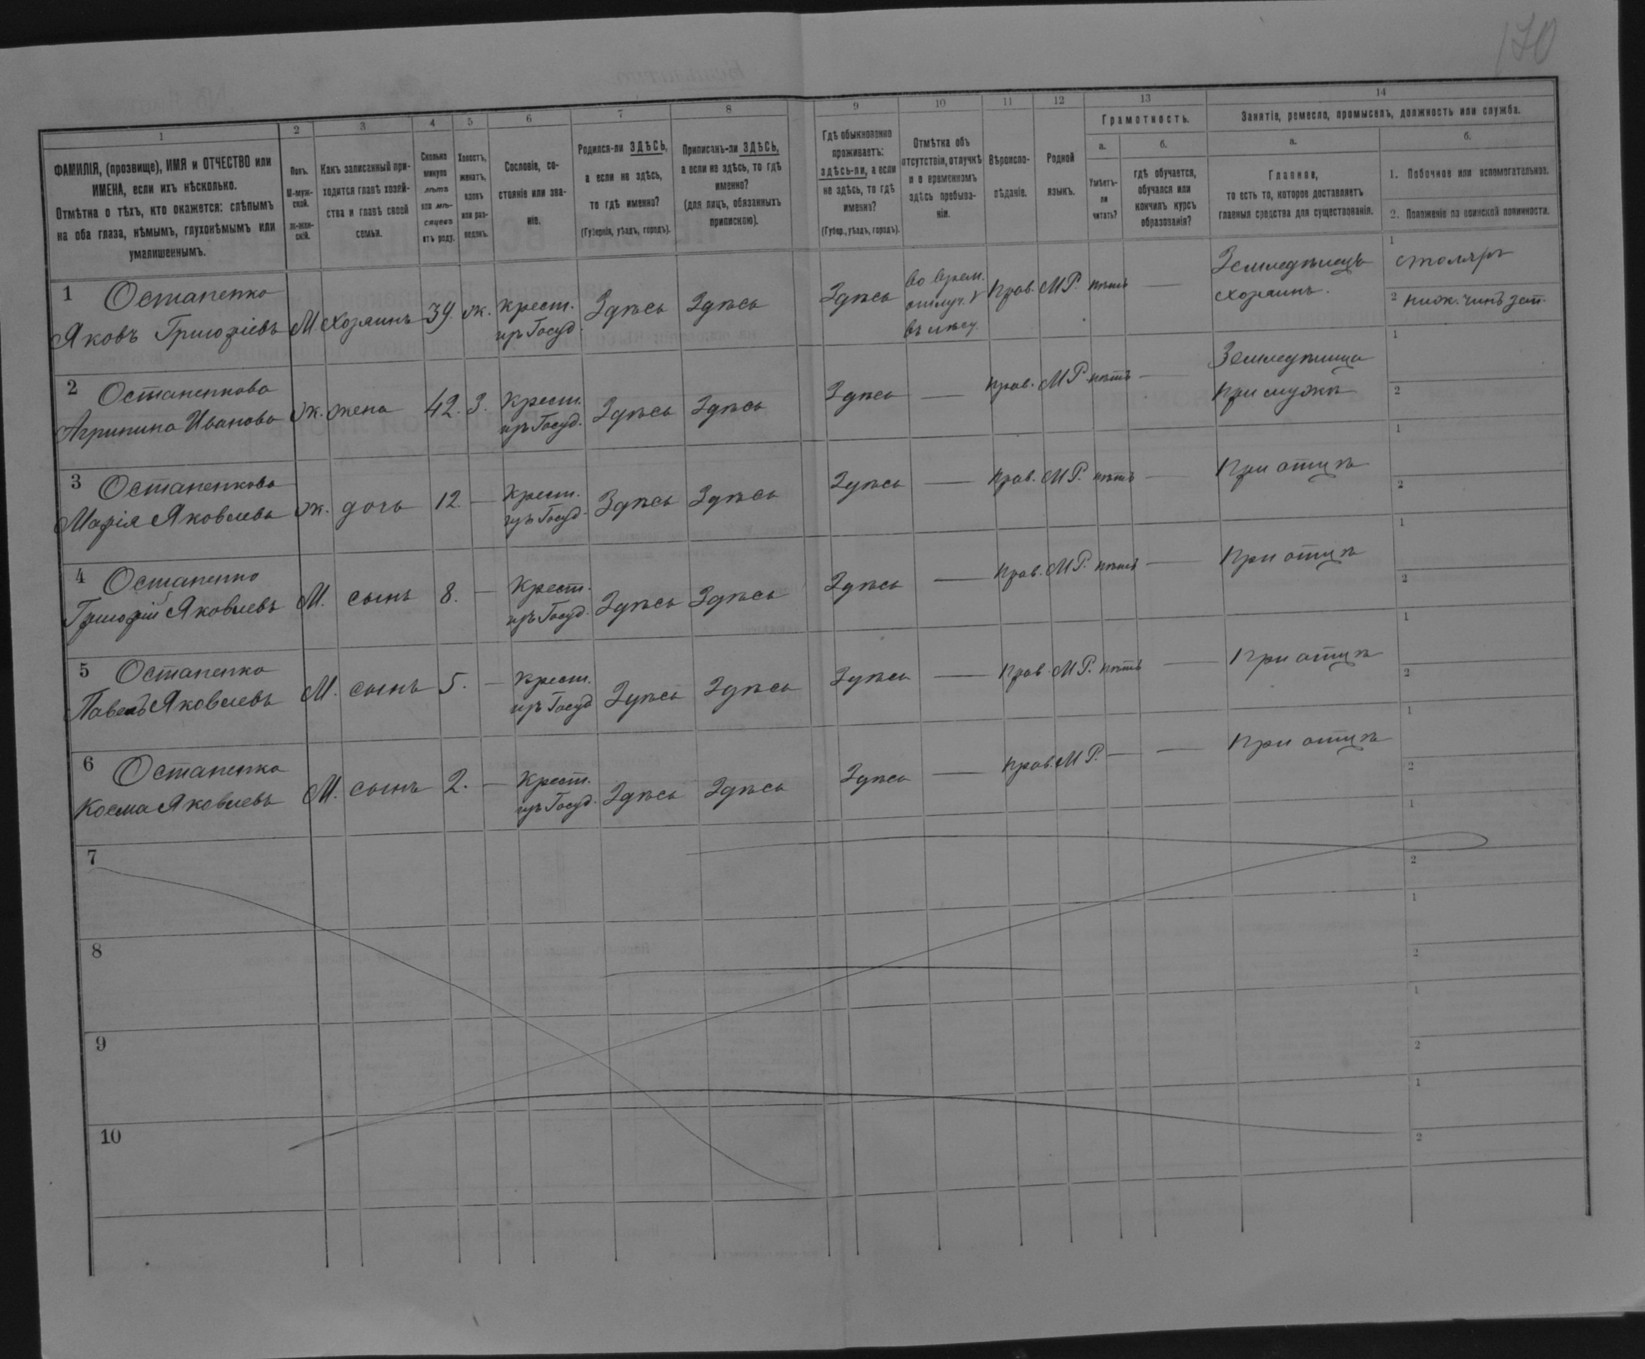 170
1
2
3
4
5
6
7
8
9
10
11
12
13
14
ФАМИЛІЯ, (прозвище), ИМЯ и ОТЧЕСТВО или
ИМЕНА, если ихъ нѣсколько.
Отмѣтка о тѣхъ, кто окажется: слѣпымъ
на оба глаза, нѣмымъ, глухонѣмымъ или
умалишеннымъ.
Полъ.
М-муж-
ской.
Ж-жен-
скій.
Какъ записанный при-
ходится главѣ хозяй-
ства и главѣ своей
семьи.
Сколько
минуло
лѣтъ
или мѣ-
сяцевъ
отъ роду.
Холостъ,
женатъ,
вдовъ
или раз-
веденъ.
Сословіе, со-
стояніе или зва-
ніе.
Родился-ли ЗДѢСЬ,
а если не здѣсь,
то гдѣ именно?
(Губернія, уѣздъ, городъ).
Приписанъ-ли ЗДѢСЬ,
а если не здѣсь, то гдѣ
именно?
(для лицъ, обязанныхъ
припискою).
Гдѣ обыкновенно
проживаетъ:
здѣсь-ли, а если
не здѣсь, то гдѣ
именно?
(Губер., уѣздъ, городъ).
Отмѣтка объ
отсутствіи, отлучкѣ
и о временномъ
здѣсь пребыва-
ніи.
Вѣроиспо-
вѣданіе.
Родной
языкъ.
Грамотность.
а.
Умѣетъ-
ли
читать?
б.
гдѣ обучается,
обучался или
кончилъ курсъ
образованія?
Занятія, ремесло, промыселъ, должность или служба.
а.
Главное,
то есть то, которое доставляетъ
главныя средства для существованія.
б.
1. Побочное или вспомогательное.
2. Положеніе по воинской повинности.
1 Остапенко
Яковъ Григорієвъ М хозяинъ 39 ж. Крест. изъ Госуд. Здѣсь Здѣсь Здѣсь во врем. отлуч. въ лѣсу Прав. МР. нѣтъ — Земледѣлецъ хозяинъ. 1 столяръ 2 нижн. чинъ зап.
2 Остапенкова
Агрипина Иванова ж. жена 42. З. Крест. изъ Госуд. Здѣсь Здѣсь Здѣсь — Прав. МР. нѣтъ — Земледѣлица При мужѣ 1 2
3 Остапенкова
Марія Яковлева ж. дочь 12 — Крест. изъ Госуд. Здѣсь Здѣсь Здѣсь — Прав. МР. нѣтъ — При отцѣ 1 2
4 Остапенко
Григорій Яковлевъ М. сынъ 8. — Крест. изъ Госуд. Здѣсь Здѣсь Здѣсь — Прав. МР. нѣтъ — При отцѣ 1 2
5 Остапенко
Павелъ Яковлевъ М. сынъ 5. — Крест. изъ Госуд Здѣсь Здѣсь Здѣсь — Прав. МР. нѣтъ — При отцѣ 1 2
6 Остапенко
Косма Яковлевъ М. сынъ 2. — Крест. изъ Госуд. Здѣсь Здѣсь Здѣсь — Прав. МР. — — При отцѣ 1 2
7 1 2
8 1 2
9 1 2
10 1 2